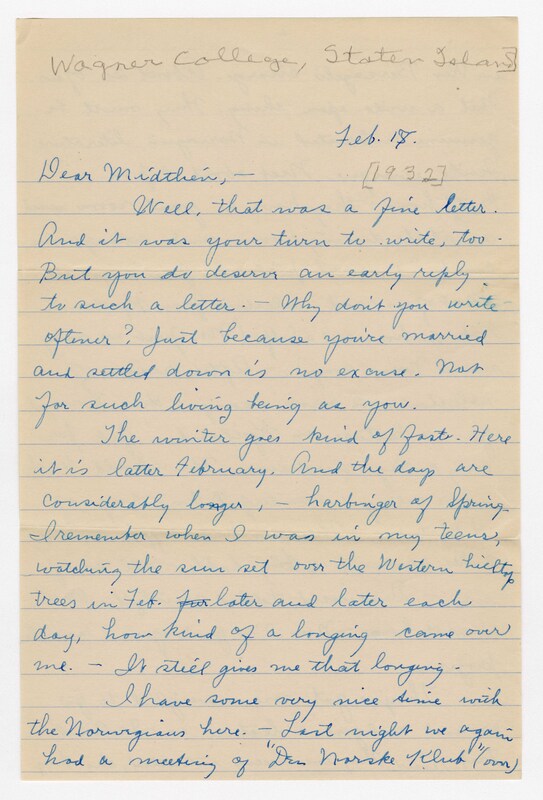 Wagner College, Staten Island]
Feb. 18.
[1932]
Dear Midthien, –
Well, that was a fine letter.
And it was your turn to write, too.
But you do deserve an early reply
to such a letter. – Why don't you write
oftener? Just because you're married
and settled down is no excuse. Not
for such living being as you.
The winter goes kind of fast. Here
it is latter February. And the days are
considerably longer, – harbinger of Spring.
I remember when I was in my teens,
watching the sun set over the Western hilltop
trees in Feb. later and later each
day, how kind of a longing came over
me. – It still gives me that longing.
I have some very nice time with
the Norwegians here. – Last night we again
had a meeting of "Den Norske Klub" (over)